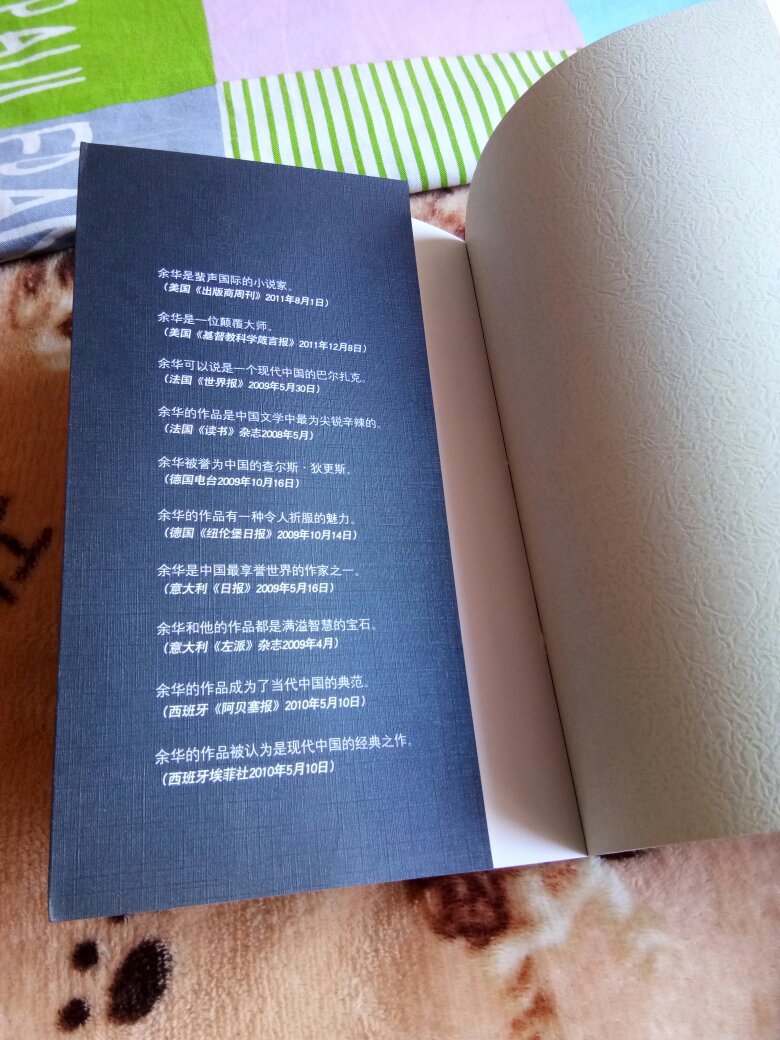 余华是蜚声国际的小说家。
（美国《出版商周刊》2011年8月1日）
余华是一位颠覆大师。
（美国《基督教科学箴言报》2011年12月8日）
余华可以说是一个现代中国的巴尔扎克。
（法国《世界报》2009年5月30日）
余华的作品是中国文学中最为尖锐辛辣的。
（法国《读书》杂志2008年5月）
余华被誉为中国的查尔斯·狄更斯。
（德国电台2009年10月16日）
余华的作品有一种令人折服的魅力。
（德国《纽伦堡日报》2009年10月14日）
余华是中国最享誉世界的作家之一。
（意大利《日报》2009年5月16日）
余华和他的作品都是满溢智慧的宝石。
（意大利《左派》杂志2009年4月）
余华的作品成为了当代中国的典范。
（西班牙《阿贝塞报》2010年5月10日）
余华的作品被认为是现代中国的经典之作。
（西班牙埃菲社2010年5月10日）